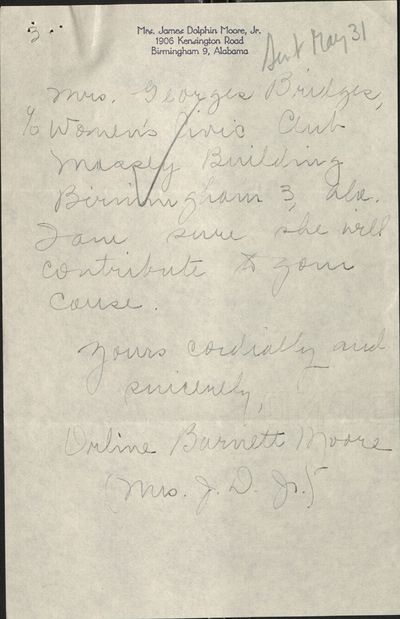 3
Mrs. James Dolphin Moore, Jr.
1906 Kensington Road
Birmingham 9, Alabama
Sent May 31
Mrs. Georges Bridges,
c/o Women's Civic Club
Massey Building
Birmingham 3, Ala.
I am sure she will
contribute to your
cause.
Yours cordially and
sincerely,
Orline Barnett Moore
(Mrs. J. D. Jr.)